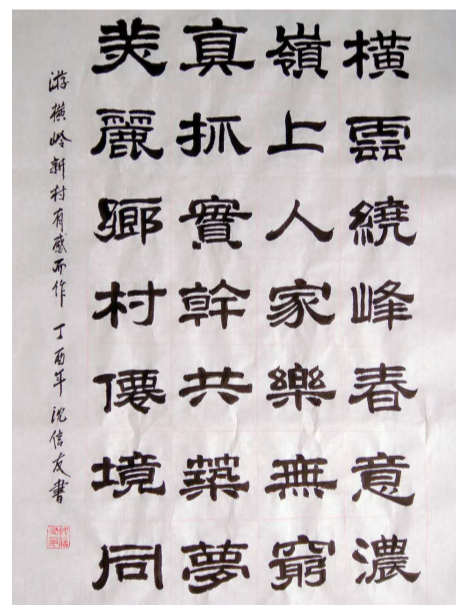 橫雲繞峰春意濃
嶺上人家樂無窮
真抓實幹共築夢
美麗鄉村僊境同
游橫岭新村有感而作 丁酉年 沈信友書